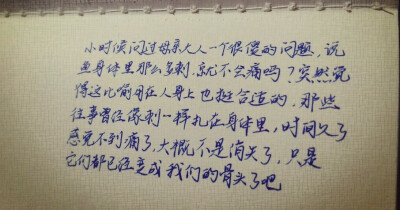 小时候问过母亲大人一个很傻的问题，说
鱼身体里那么多刺，就不会痛吗？突然觉
得这比喻用在人身上也挺合适的，那些
往事曾经像刺一样扎在身体里，时间久了
感觉不到痛了，大概不是消失了，只是
它们都已经变成我们的骨头了吧